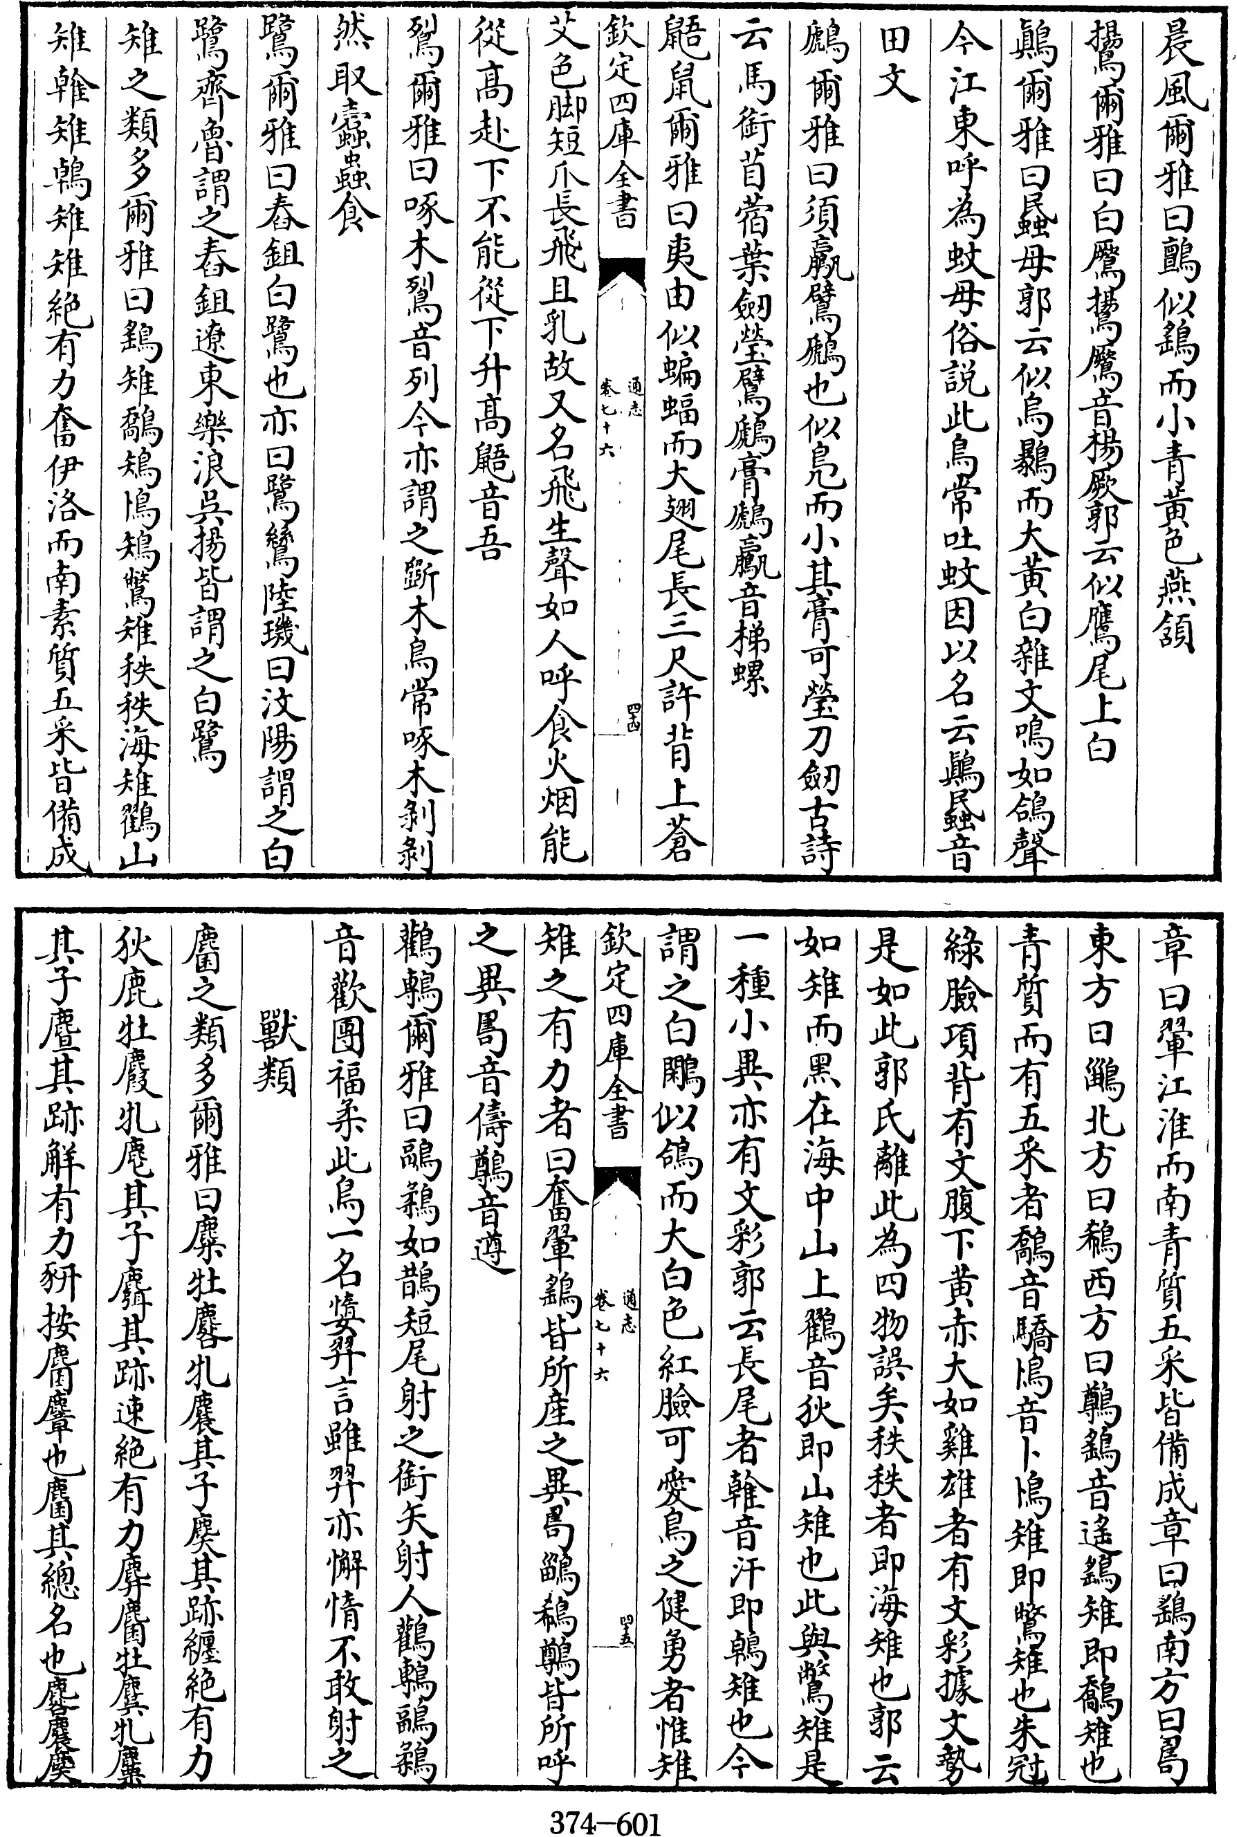 晨風爾雅曰鸇似鷂而小青黃色燕頷
鸉爾雅曰白鷢鸉鷢音楊厥郭云似鷹尾上白
鷏爾雅曰蟁母郭云似烏鷃而大黃白雜文鳴如鴿聲
今江東呼為蚊母俗說此鳥常吐蚊因以名云鷏蟁音
田文
鷉爾雅曰須鸁鷿鷉也似鳧而小其膏可瑩刀劒古詩
云馬銜苜蓿葉劒瑩鷿鷉膏鷉鸁音梯螺
鼯鼠爾雅曰夷由似蝙蝠而大翅尾長三尺許背上蒼
欽定四庫全書
通志
卷七十六
四十四
艾色脚短爪長飛且乳故又名飛生聲如人呼食火烟能
從高赴下不能從下升高鼯音吾
鴷爾雅曰啄木鴷音列今亦謂之斲木鳥常啄木剝剝
然取蠹蟲食
鷺爾雅曰舂鉏白鷺也亦曰鷺鷥陸璣曰汶陽謂之白
鷺齊魯謂之舂鉏遼東樂浪吳揚皆謂之白鷺
雉之類多爾雅曰鷂雉鷮雉鳪雉鷩雉秩秩海雉鸐山
雉雗雉鵫雉雉絕有力奮伊洛而南素質五采皆備成
章曰翬江淮而南青質五采皆備成章曰鷂南方曰𠷎
東方曰鶅北方曰鵗西方曰鷷鷂音遙鷂雉即鷮雉也
青質而有五采者鷮音驕鳪音卜鳪雉即鷩雉也朱冠
綠臉項背有文腹下黃赤大如雞雄者有文彩據文勢
是如此郭氏離此為四物誤矣秩秩者即海雉也郭云
如雉而黑在海中山上鸐音狄即山雉也此與鷩雉是
一種小異亦有文彩郭云長尾者雗音汗即鵫雉也今
謂之白鷳似鴿而大白色紅臉可愛鳥之健勇者惟雉
欽定四庫全書
通志
卷七十六
四十五
雉之有力者曰奮翬鷂皆所產之異𠷎鶅鵗鷷皆所呼
之異𠷎音儔鷷音遵
鸛鷒爾雅曰鶝鶔如鵲短尾射之銜矢射人鸛鷒鶝鶔
音歡團福柔此鳥一名㜸羿言雖羿亦懈惰不敢射之
獸類
麕之類多爾雅曰麋牡麔牝麎其子䴠其跡躔絕有力
狄鹿牡麚牝麀其子麛其跡速絕有力麉麕牡麌牝麜
其子麆其跡解有力豜按麕麞也麕其總名也麔麎䴠
374-601